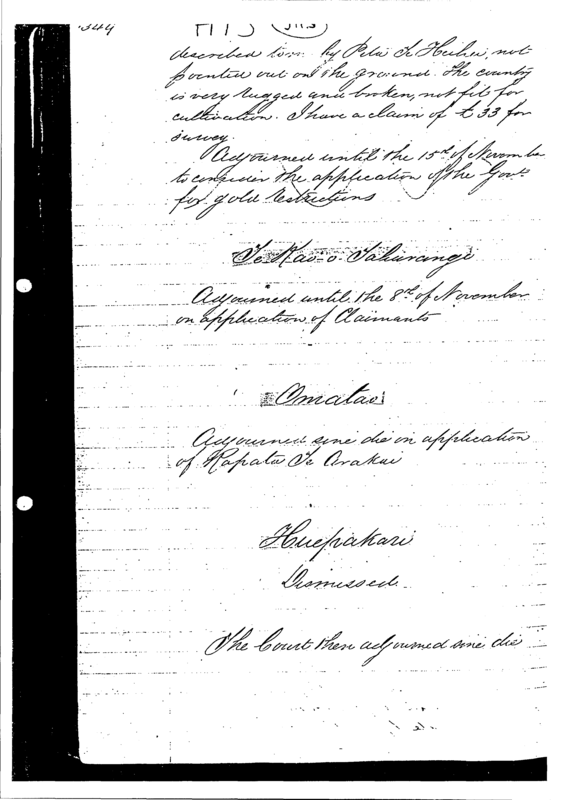 349
described to me by Peta Te Heihei, not
pointed out on the ground. The country
is very rugged and broken, not fit for
cultivation. I have a claim of £33 for
survey.
Adjourned until the 15th of Novembe
to consider the application of the Govt
for gold restrictions
Te Kao-o-Tahurangi
Adjourned until the 8th of November
on application of Claimants
Omatao
Adjourned sine die on application
of Hapata Te Arakai
Huepakari
Dismissed
The Court then adjourned sine die